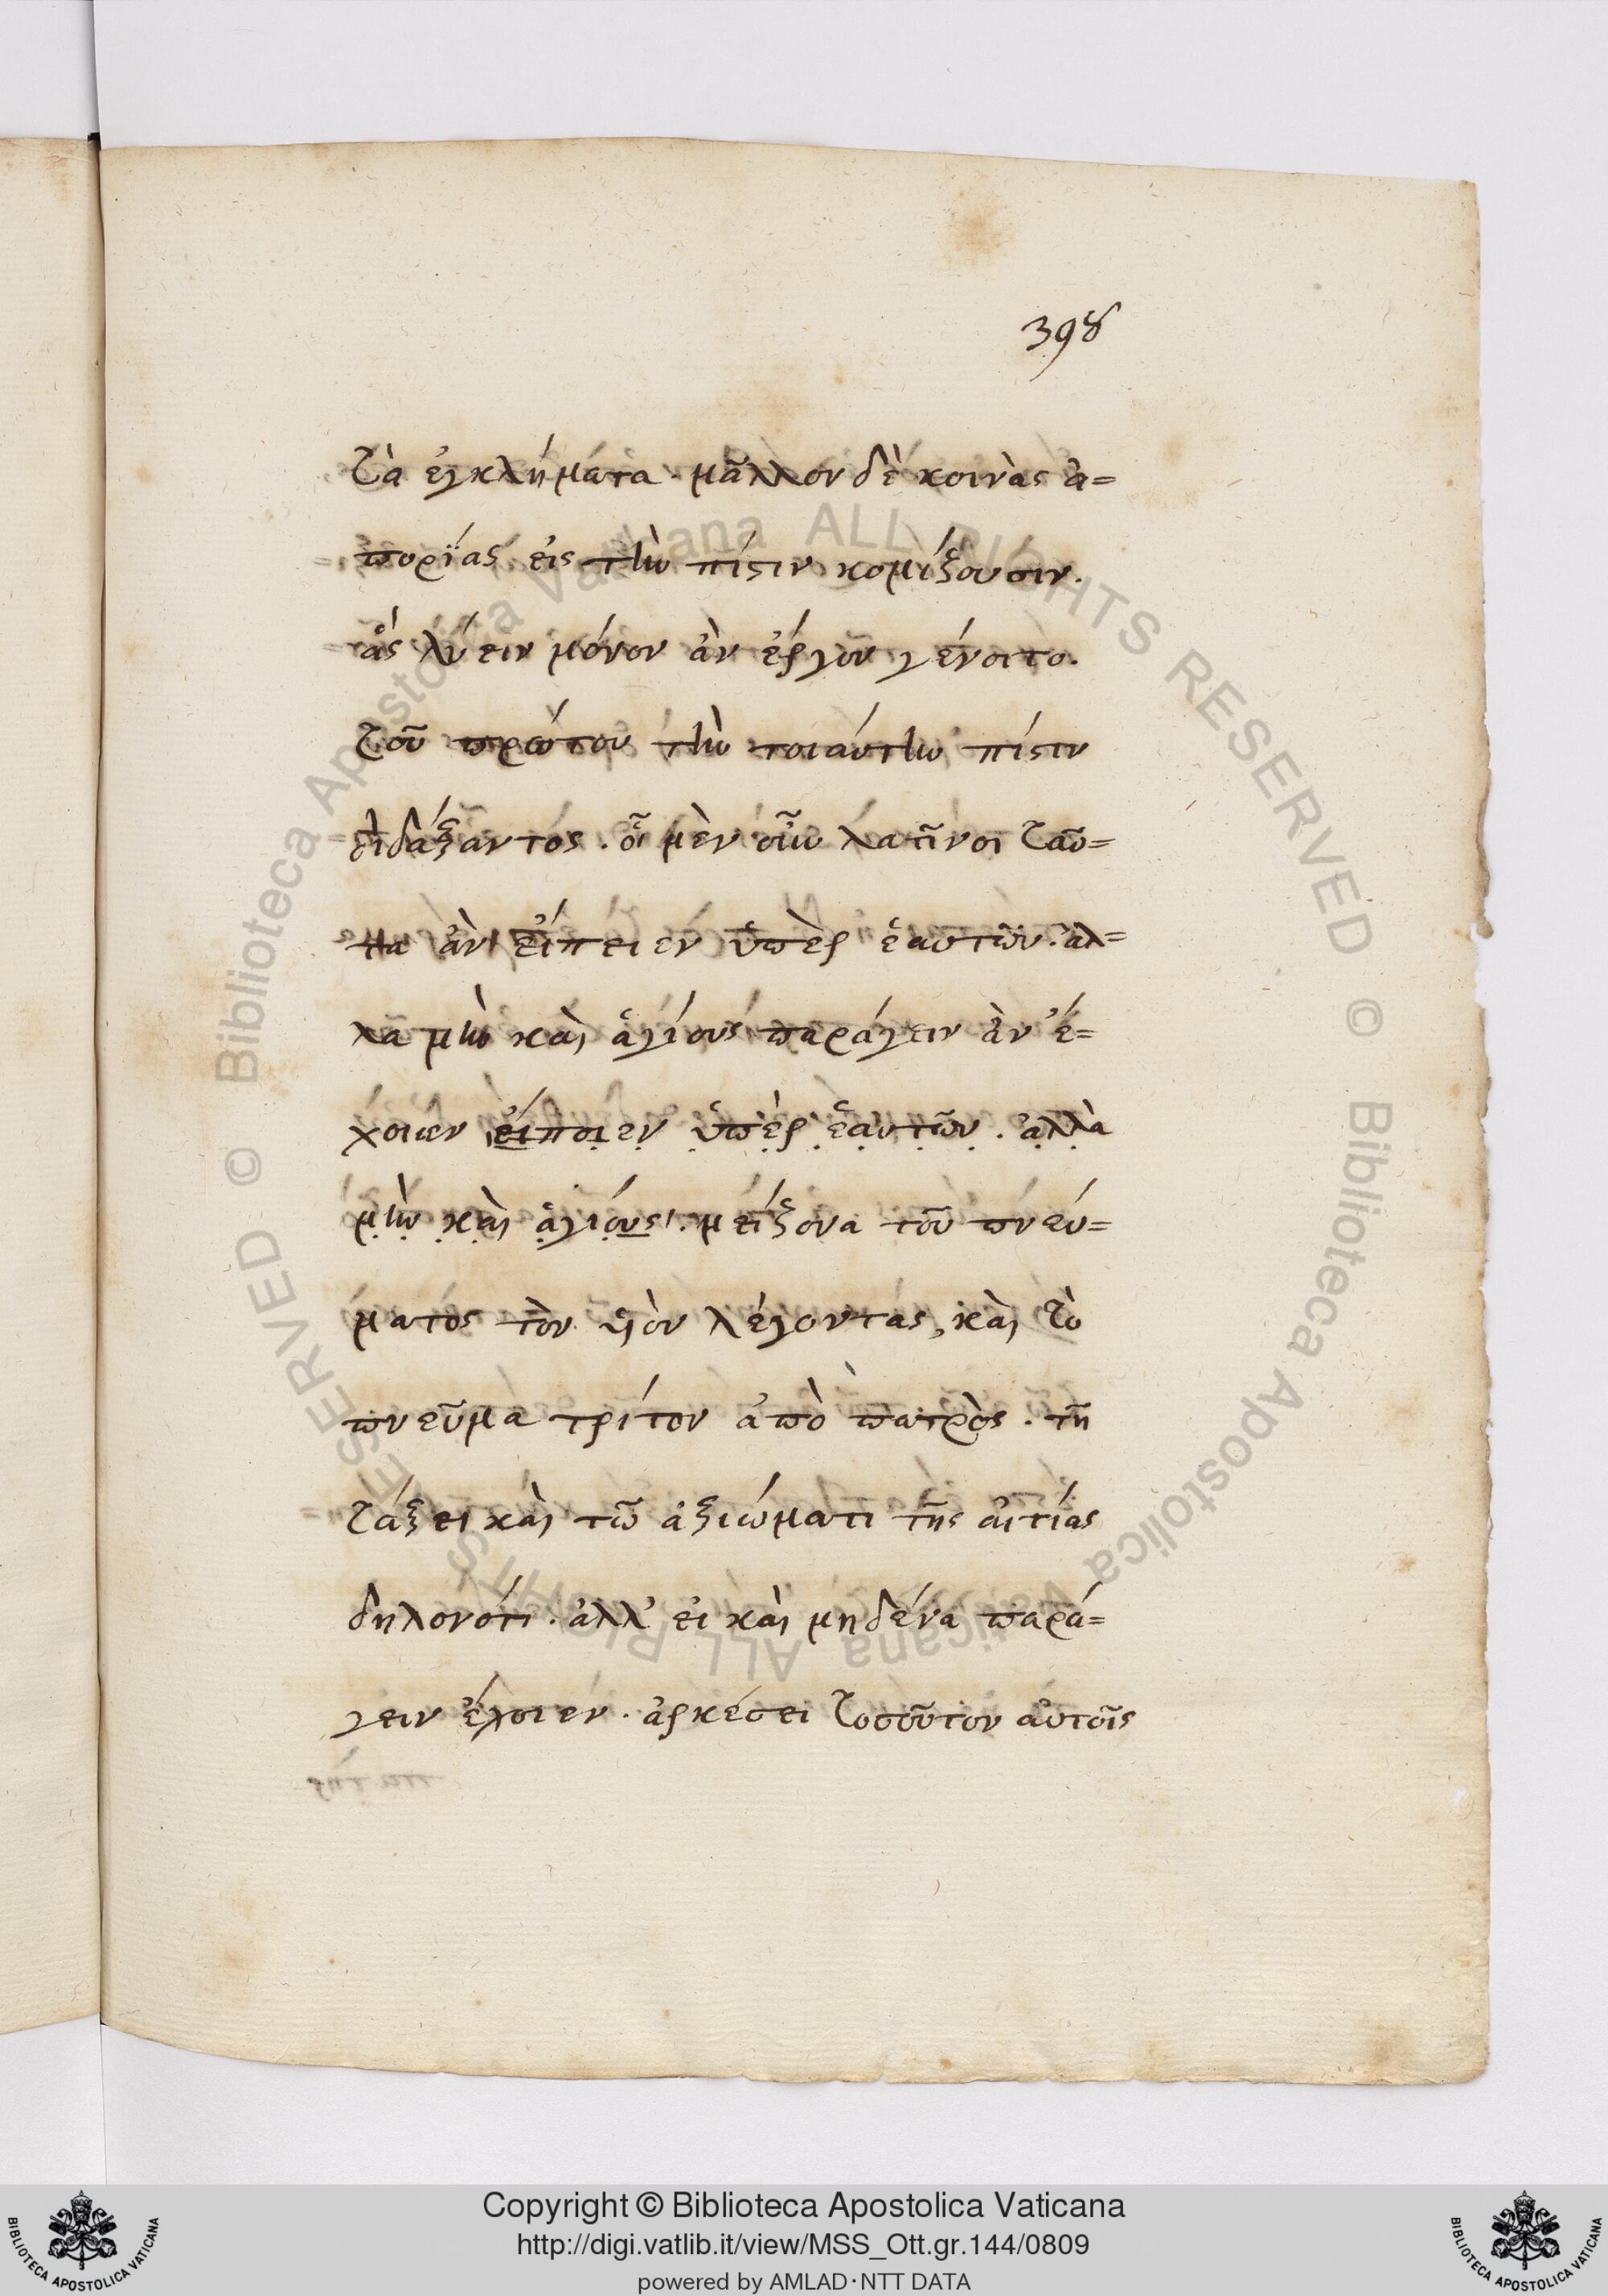 398
τὰ ἐγκλήματα· μᾶλλον δὲ κοινὰς ἀ=
πορίας εἰς τὴν πίστιν κομίζουσιν.
ἃς λύειν μόνον ἂν ἔργον γένοιτο.
τοῦ πρώτου τὴν τοιαύτην πίστιν
διδάξαντος. οἱ μὲν οὖν λατῖνοι ταῦ=
τα ἂν εἴπειεν ὑπὲρ ἑαυτῶν. ἀλ=
λα μὴν καὶ ἁγίους παράγειν ἂν ἔ=
χοιεν εἴποιεν ὑπὲρ ἑαυτῶν. ἀλλὰ
μὴν καὶ ἁγίους. μείζονα τοῦ πνεύ=
ματος τὸν υἱὸν λέγοντας, καὶ τὸ
πνεῦμα τρίτον ἀπὸ πατρὸς. τῆ
τάξει καὶ τῶ ἀξιώματι τῆς αἰτίας
δηλονότι. ἀλλ' εἰ καὶ μηδένα παρά=
γειν ἔχοιεν. ἀρκέσει τοσοῦτον αὐτοῖς
Copyright © Biblioteca Apostolica Vaticana
http://digi.vatlib.it/view/MSS_Ott.gr.144/0809
powered by AMLAD·NTT DATA
BIBLIOTECA APOSTOLICA VATICANA
BIBLIOTECA APOSTOLICA VATICANA
© Biblioteca Apostolica Vaticana ALL RIGHTS RESERVED
© Biblioteca Apostolica Vaticana ALL RIGHTS RESERVED